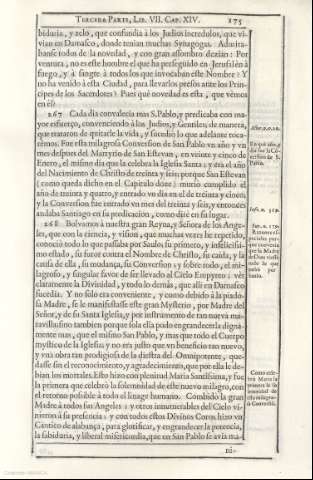 TERCERA PARTE, LIB. VII. CAP. XIV. 175
biduria, y zelo, que confundia à los Judios incredulos, que vi-
vian en Damasco, donde tenian muchas Synagogas. Admira-
banse todos de la novedad, y con gran assombro dezian: Por
ventura, no es este hombre el que ha perseguido en Jerusalèn à
fuego, y à sangre à todos los que invocaban este Nombre? Y
no ha venido à esta Ciudad, para llevarlos presos ante los Prin-
cipes de los Sacerdotes? Pues què novedad es esta, que vemos
en èl?
267 Cada dia convalecia mas S. Pablo, y predicaba con ma-
yor esfuerço, convenciendo à los Judios, y Gentiles, de manera,
que trataron de quitarle la vida, y sucediò lo que adelante toca-
rèmos. Fue esta milagrosa Conversion de San Pablo un año y un
mes despues del Martyrio de San Estevan, en veinte y cinco de
Enero, el mismo dia que la celebra la Iglesia Santa; y era el año
del Nacimiento de Christo de treinta y seis; porque San Estevan
(como queda dicho en el Capitulo doze) murió cumplido el
año de treinta y quatro, y entrado un dia en el de treinta y cinco;
y la Conversion fue entrado un mes del treinta y seis, y entonces
andaba Santiago en su predicacion, como dirè en su lugar.
268 Bolvamos à nuestra gran Reyna, y Señora de los Ange-
les, que con la ciencia, y vision, que muchas vezes he repetido,
conociò todo lo que passaba por Saulo; su primero, y infelicissi-
mo estado, su furor contra el Nombre de Christo, su caida, y la
causa de ella, su mudança, su Conversion; y sobre todo, el mi-
lagroso, y singular favor de ser llevado al Cielo Empyreo, y vèr
claramente la Divinidad, y todo lo demàs, que allì en Damasco
sucedia. Y no solo era conveniente, y como debido à la piado-
sa Madre, se le manifestasse este gran Mysterio, por Madre del
Señor, y de su Santa Iglesia, y por instrumento de tan nueva ma-
ravilla; sino tambien porque sola ella podo engrandecerla digna-
mente mas, que el mismo San Pablo, y mas que todo el Cuerpo
mystico de la Iglesia; y no era justo que un beneficio tan nuevo,
y una obra tan prodigiosa de la diestra del Omnipotente, que-
dasse sin el reconocimiento, y agradecimiento, que por ella le de-
bian los mortales. Esto hizo con plenitud Maria Santissima, y fue
la primera que celebrò la solemnidad de este nuevo milagro, con
el retorno possible à todo el linage humano. Combidò la gran
Madre à todos sus Angeles; y otros innumerables del Cielo vi-
nieron à su presencia; y con todos estos Divinos Coros hizo un
Cantico de alabança, para glorificar, y engrandecer la potencia,
la sabiduria, y liberal misericordia, que en San Pablo se avia ma-
ni-
En què año, y
dia fue la Co-
version de S.
Pablo.
Como cele-
brò Maria la
primera la so-
lemnidad de
este milagro-